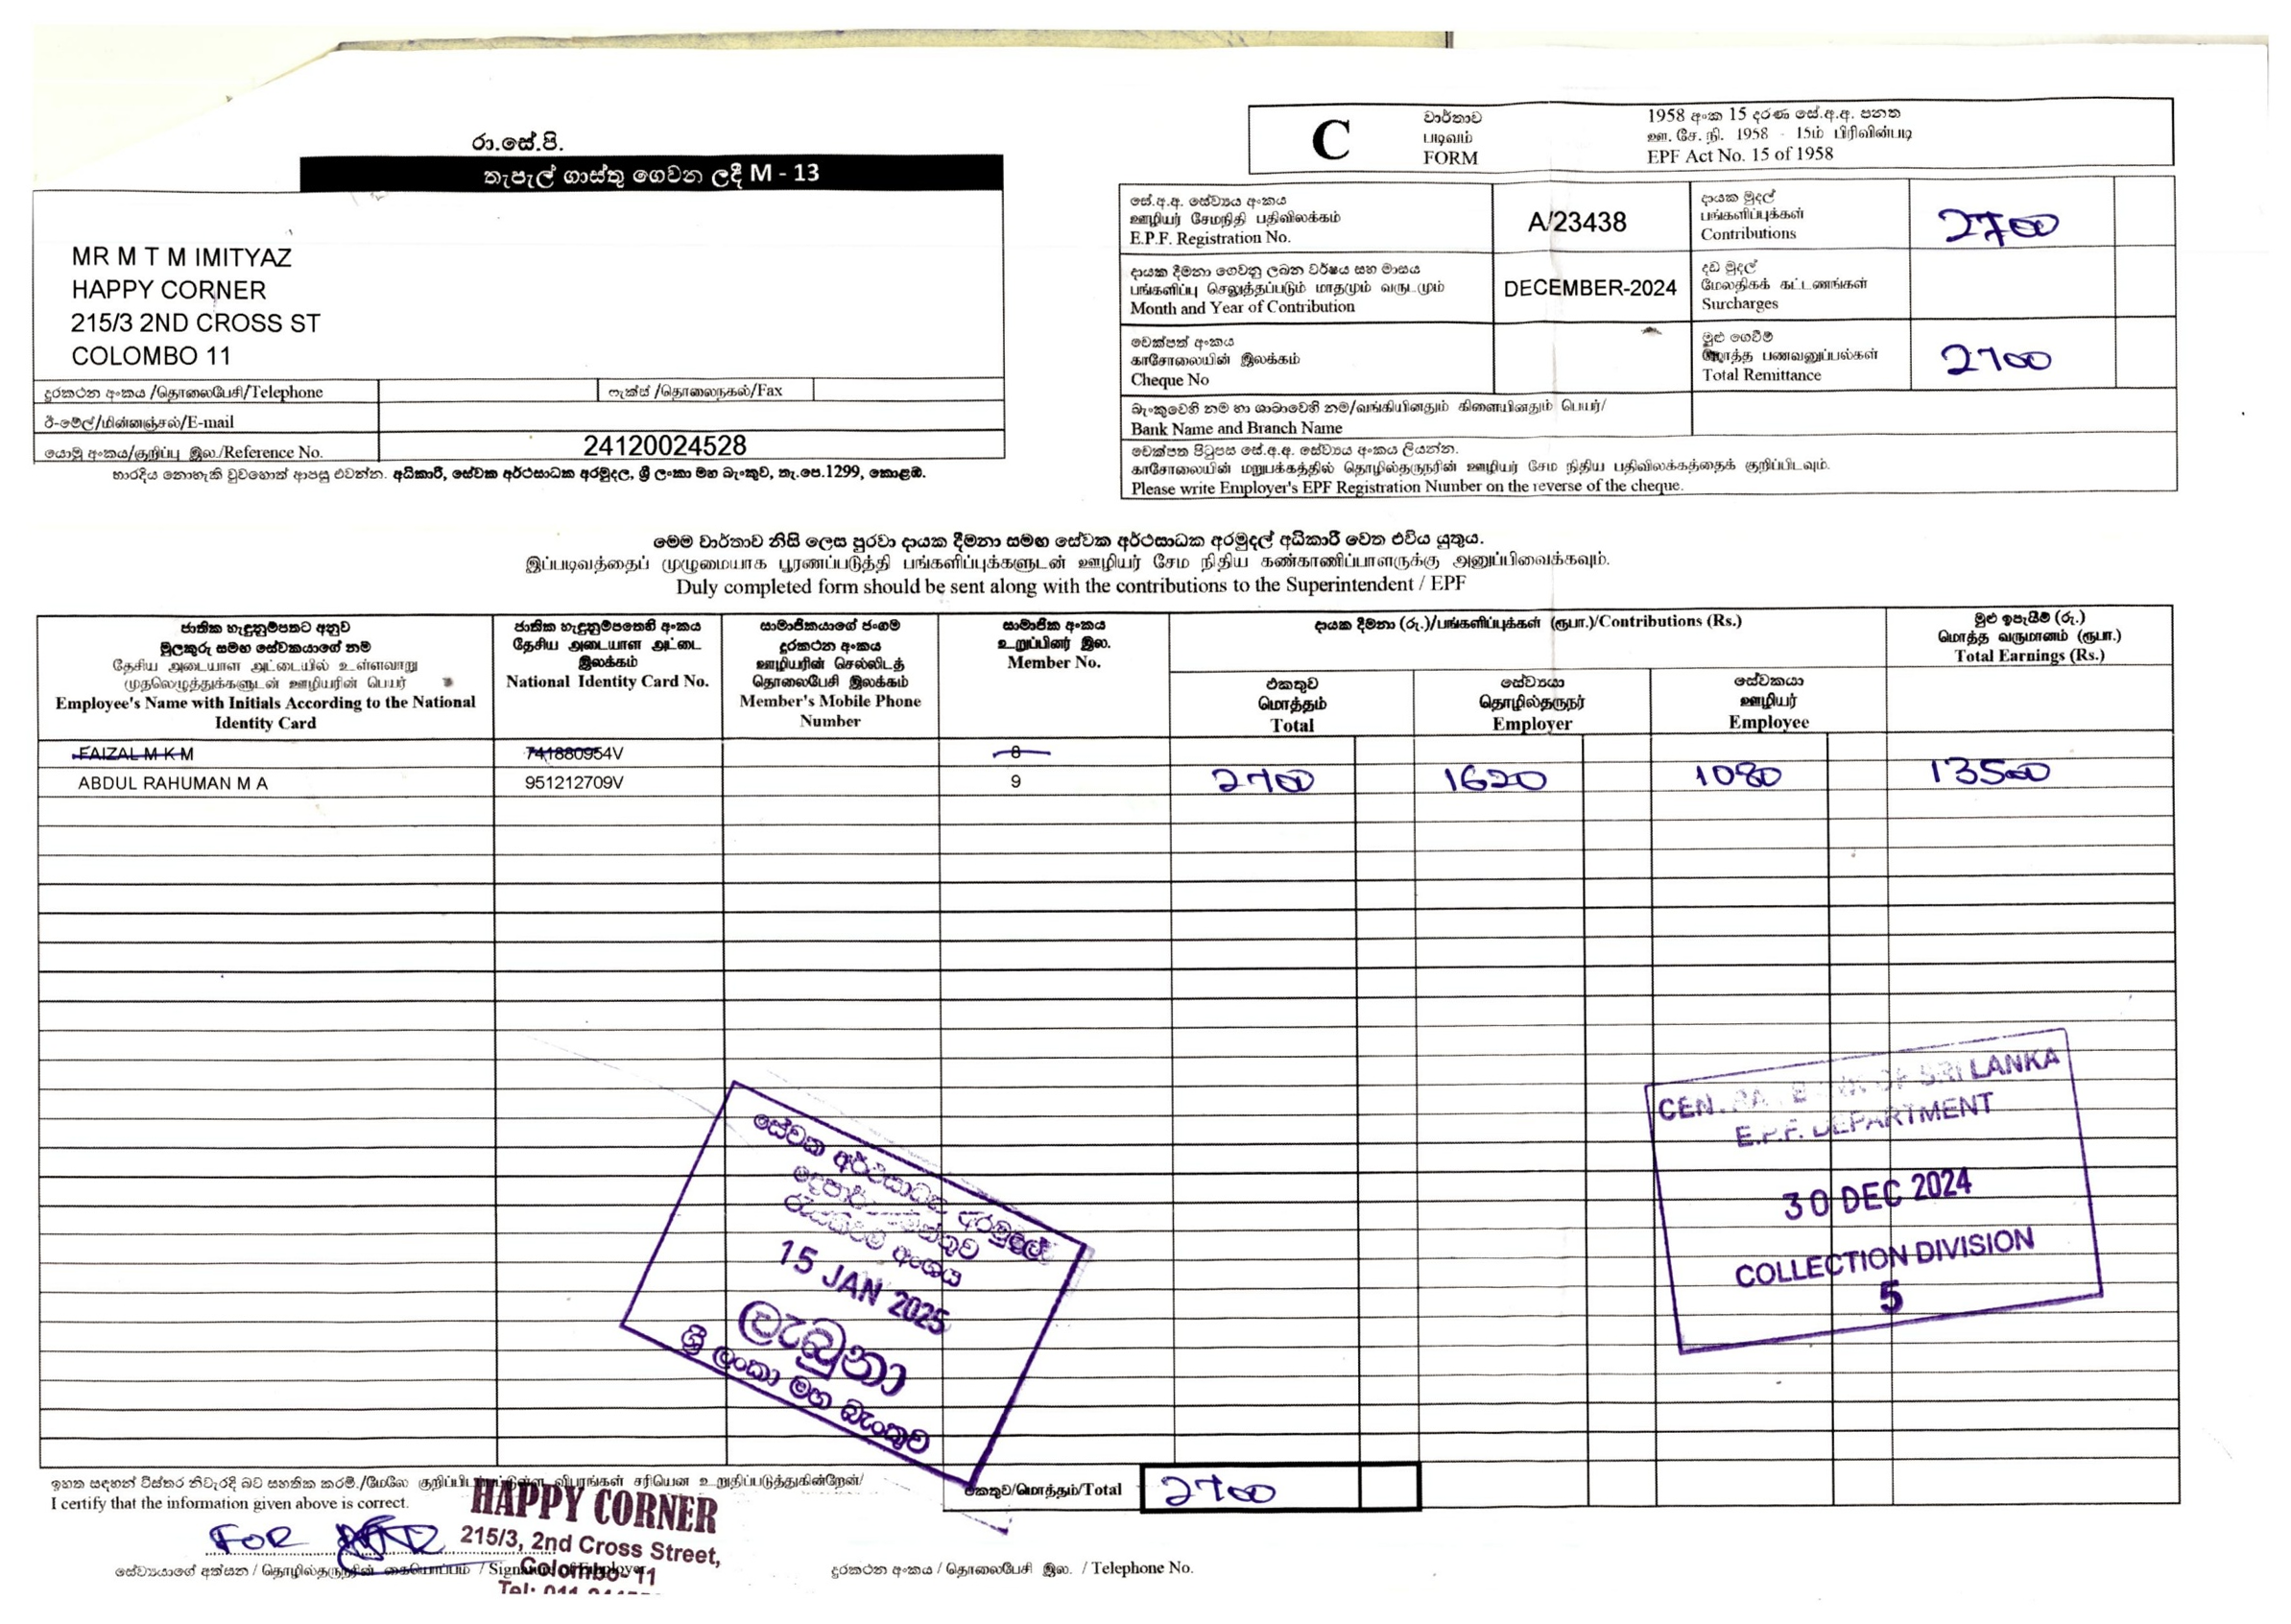 රා.සේ.පි.
තැපැල් ගාස්තු ගෙවන ලදී M - 13
MR M T M IMITYAZ
HAPPY CORNER
215/3 2ND CROSS ST
COLOMBO 11
දුරකථන අංකය /தொலைபேசி/Telephone
ෆැක්ස් /தொலைநகல்/Fax
ඊ-මේල්/மின்னஞ்சல்/E-mail
යොමු අංකය/குறிப்பு இல./Reference No. 24120024528
භාරදිය නොහැකි වුවහොත් ආපසු එවන්න. අධිකාරී, සේවක අර්ථසාධක අරමුදල, ශ්‍රී ලංකා මහ බැංකුව, තැ.පෙ.1299, කොළඹ.
C
වාර්තාව
படிவம்
FORM
1958 අංක 15 දරණ සේ.අ.අ. පනත
ஊ. சே. நி. 1958 - 15ம் பிரிவின்படி
EPF Act No. 15 of 1958
සේ.අ.අ. සේව්‍යය අංකය
ஊழியர் சேமநிதி பதிவிலக்கம்
E.P.F. Registration No.
A/23438
දායක මුදල්
பங்களிப்புக்கள்
Contributions
2700
දායක දීමනා ගෙවනු ලබන වර්ෂය සහ මාසය
பங்களிப்பு செலுத்தப்படும் மாதமும் வருடமும்
Month and Year of Contribution
DECEMBER-2024
දඩ මුදල්
மேலதிகக் கட்டணங்கள்
Surcharges
චෙක්පත් අංකය
காசோலையின் இலக்கம்
Cheque No
මුළු ගෙවීම්
பணவனுப்பல்கள்
Total Remittance
2700
බැංකුවෙහි නම හා ශාඛාවෙහි නම/வங்கியினதும் கிளையினதும் பெயர்/
Bank Name and Branch Name
චෙක්පත පිටුපස සේ.අ.අ. සේව්‍යය අංකය ලියන්න.
காசோலையின் மறுபக்கத்தில் தொழில்தருநரின் ஊழியர் சேம நிதிய பதிவிலக்கத்தைக் குறிப்பிடவும்.
Please write Employer's EPF Registration Number on the reverse of the cheque.
මෙම වාර්තාව නිසි ලෙස පුරවා දායක දීමනා සමඟ සේවක අර්ථසාධක අරමුදල් අධිකාරී වෙත එවිය යුතුය.
இப்படிவத்தைப் முழுமையாக பூரணப்படுத்தி பங்களிப்புக்களுடன் ஊழியர் சேம நிதிய கண்காணிப்பாளருக்கு அனுப்பிவைக்கவும்.
Duly completed form should be sent along with the contributions to the Superintendent / EPF
ජාතික හැඳුනුම්පතට අනුව
මුලකුරු සමඟ සේවකයාගේ නම
தேசிய அடையாள அட்டையில் உள்ளவாறு
முதலெழுத்துக்களுடன் ஊழியரின் பெயர்
Employee's Name with Initials According to the National
Identity Card
ජාතික හැඳුනුම්පතෙහි අංකය
தேசிய அடையாள அட்டை
இலக்கம்
National Identity Card No.
සාමාජිකයාගේ ජංගම
දුරකථන අංකය
ஊழியரின் செல்லிடத்
தொலைபேசி இலக்கம்
Member's Mobile Phone
Number
සාමාජික අංකය
உறுப்பினர் இல.
Member No.
දායක දීමනා (රු.)/பங்களிப்புக்கள் (ரூபா.)/Contributions (Rs.)
එකතුව
மொத்தம்
Total
සේව්‍යයා
தொழில்தருநர்
Employer
සේවකයා
ஊழியர்
Employee
මුළු ඉපැයීම් (රු.)
மொத்த வருமானம் (ரூபா.)
Total Earnings (Rs.)
FAIZAL M K M 741880954V 8
ABDUL RAHUMAN M A 951212709V 9 2700 1620 1080 13500
සේවක අර්ථසාධක අරමුදල්
අංශය
15 JAN 2025
ලැබුනා
ශ්‍රී ලංකා මහ බැංකුව
OF SRI LANKA
E.P.F. DEPARTMENT
30 DEC 2024
COLLECTION DIVISION
5
ඉහත සඳහන් විස්තර නිවැරදි බව සහතික කරමි./மேலே விபரங்கள் சரியென உறுதிப்படுத்துகின்றேன்/
I certify that the information given above is correct.
එකතුව/மொத்தம்/Total 2700
FOR
HAPPY CORNER
215/3, 2nd Cross Street,
Colombo-11
Tel: 011
සේව්‍යයාගේ අත්සන / தொழில்தருநரின் கையொப்பம் / Signature of Employer
දුරකථන අංකය / தொலைபேசி இல. / Telephone No.